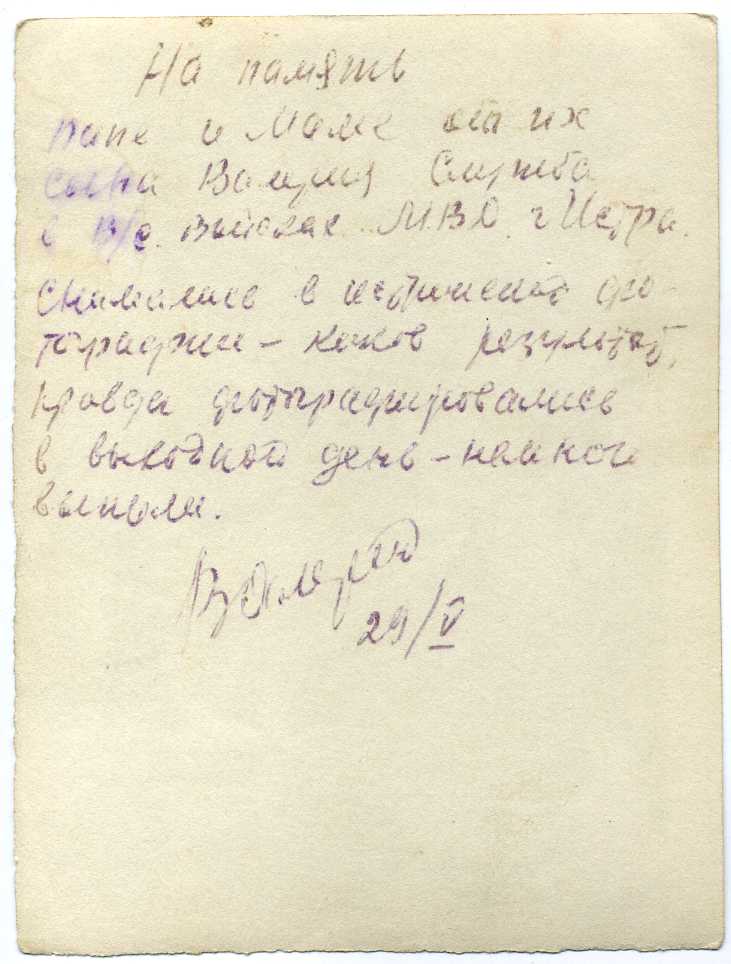 На память
папе и Маме от их
сына Валерия Служба
в В/с. Войсках МВО. г Истра.
снимались в истринской фо-
тографии – каков результат,
правда фотографировались
в выходной день – немного
выпили.
Валерий
29/V